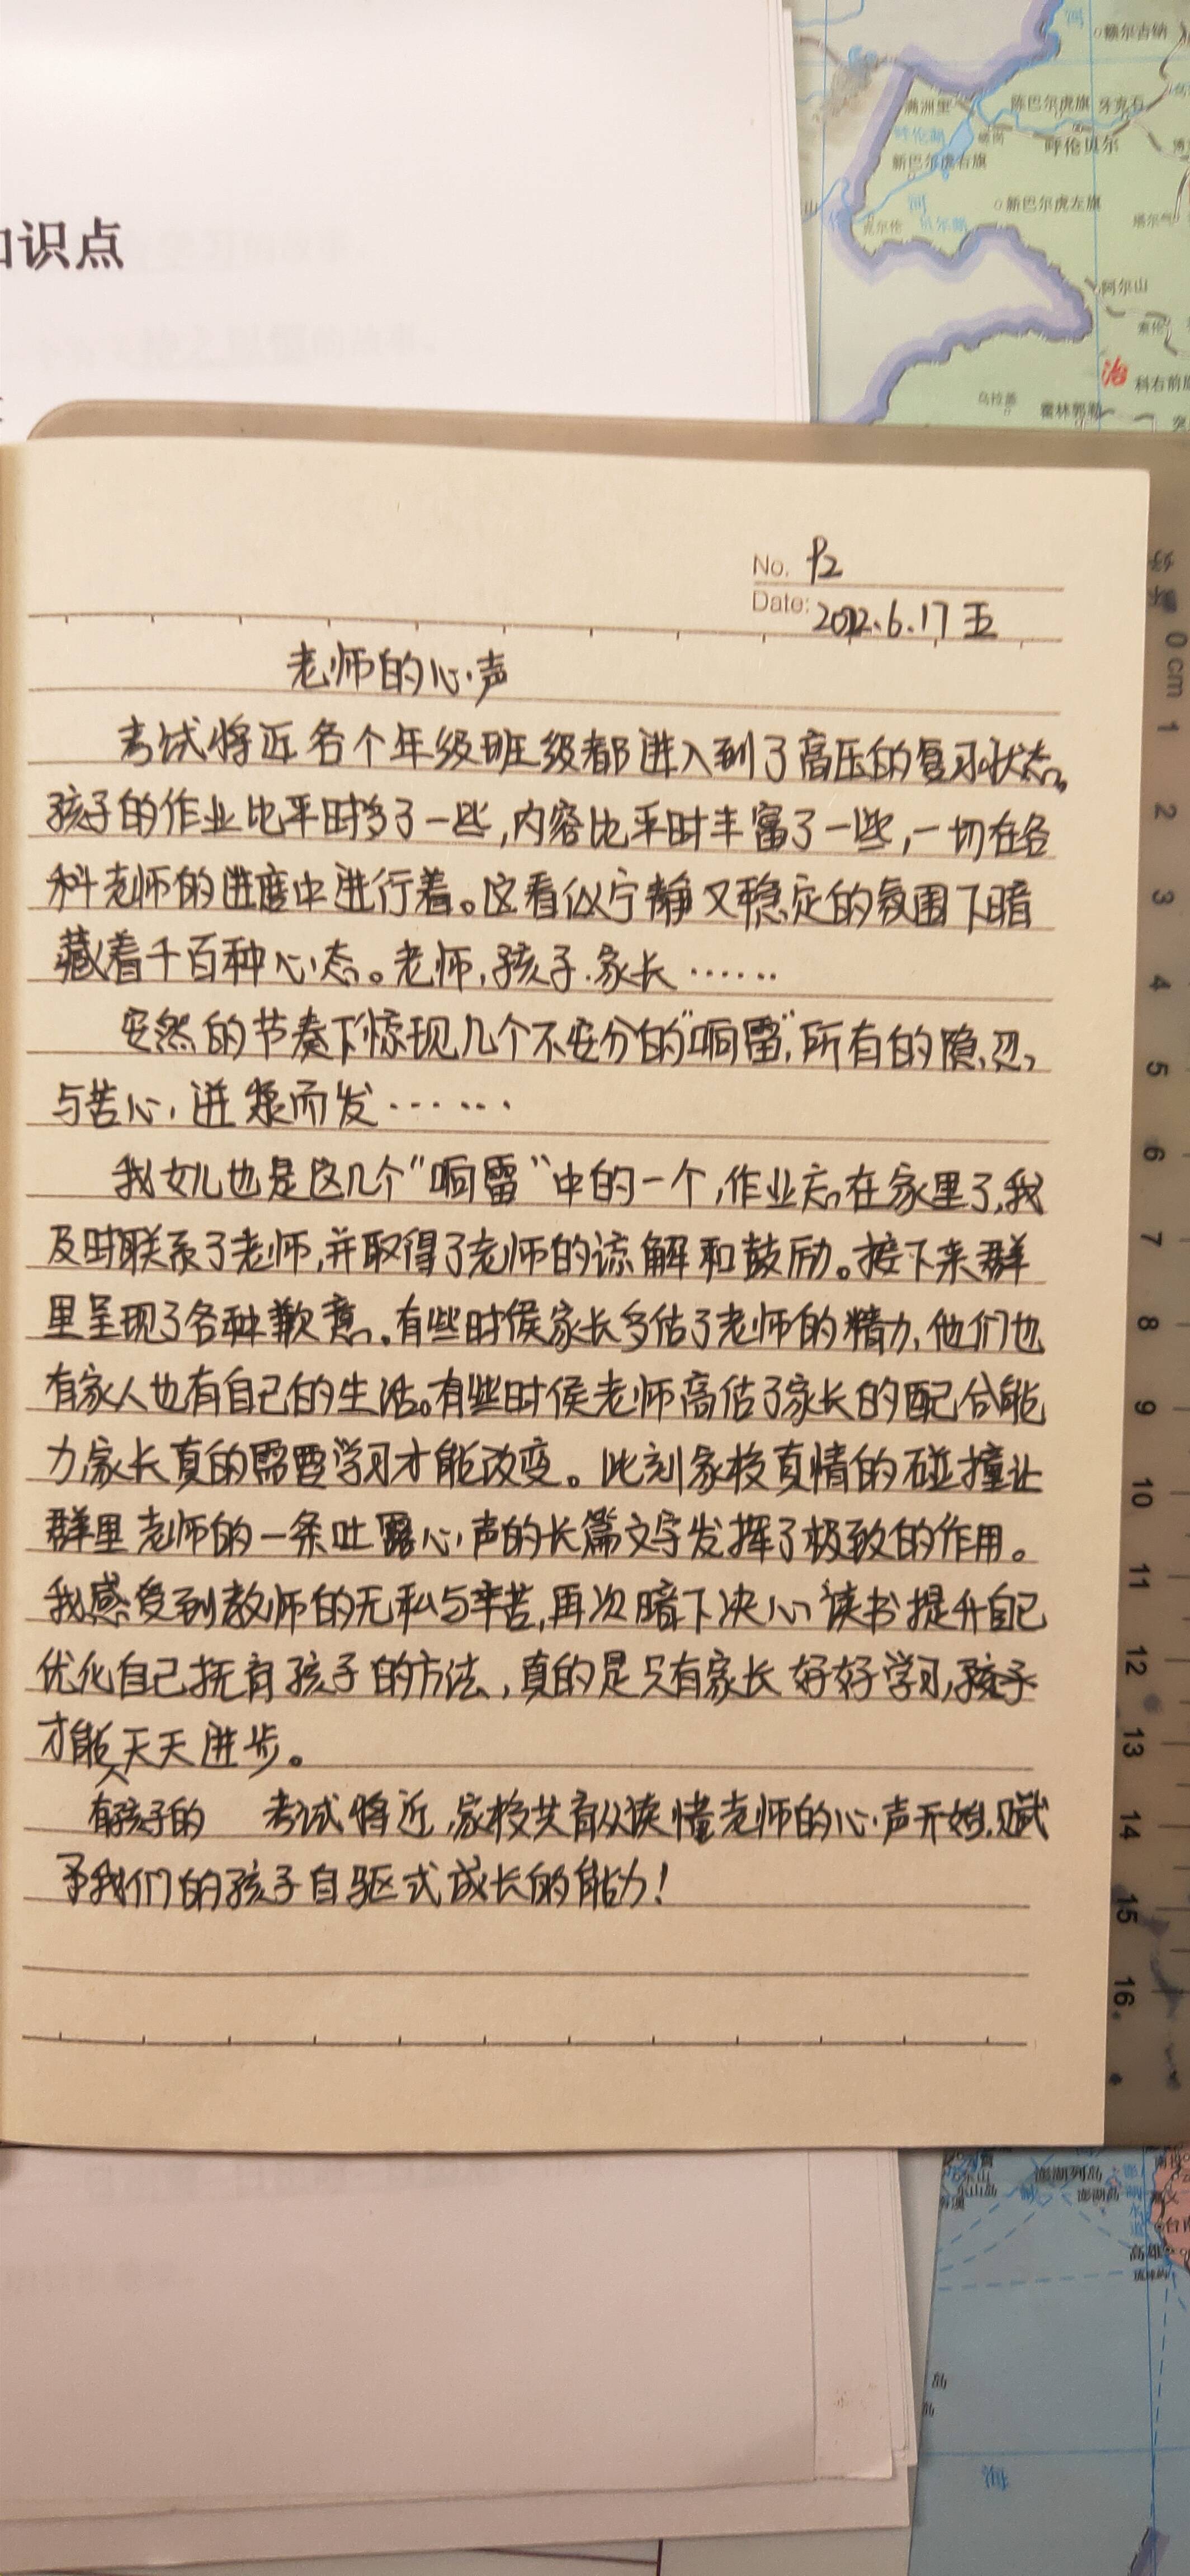 识点
额尔古纳
满洲里
陈巴尔虎旗
牙克石
呼伦湖
呼伦贝尔
新巴尔虎右旗
新巴尔虎左旗
克尔伦
河
贝尔湖
阿尔山
索伦
治
科右前旗
乌拉盖
霍林郭勒
No. P2
Date: 2022.6.17 五
老师的心声
考试将近各个年级班级都进入到了高压的复习状态。
孩子的作业比平时多了一些,内容比平时丰富了一些,一切在各
科老师的进度中进行着。这看似宁静又稳定的氛围下暗
藏着千百种心态。老师,孩子.家长……
安然的节奏下惊现几个不安分的“响雷”,所有的隐忍,
与苦心,迸发而发……
我女儿也是这几个“响雷“中的一个,作业忘在家里了,我
及时联系了老师,并取得了老师的谅解和鼓励。接下来群
里呈现了各种歉意。有些时侯家长多估了老师的精力,他们也
有家人也有自己的生活。有些时侯老师高估了家长的配合能
力,家长真的需要学习才能改变。此刻家校真情的碰撞让
群里老师的一条吐露心声的长篇文字发挥了极致的作用。
我感受到教师的无私与辛苦,再次暗下决心读书提升自己
优化自己抚育孩子的方法,真的是只有家长好好学习,孩子
才能天天进步。
有孩子的 考试将近,家校共育从读懂老师的心声开始,赋
予我们的孩子自驱式成长的能力!
0 cm 1 2 3 4 5 6 7 8 9 10 11 12 13 14 15 16
东山岛
澎湖列岛
澎湖岛
高雄
岛